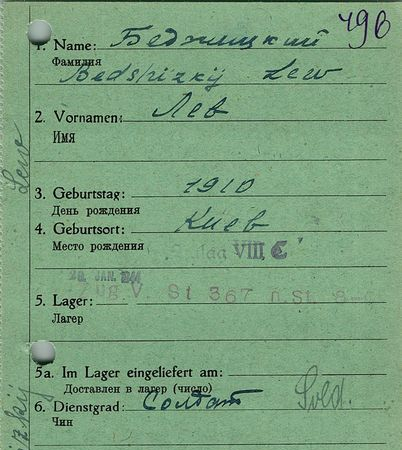 496
1. Name: Беджицкий
Фамилия
Bedshizkij Lew
2. Vornamen: Лев
Имя
3. Geburtstag: 1910
День рождения
4. Geburtsort: Киев
Место рождения
Stalag VIII C
26. JAN. 1944
Zug. V St 367 n. St.
5. Lager:
Лагерь
5a. Im Lager eingeliefert am:
Доставлен в лагерь (число)
6. Dienstgrad: Солдат Sold.
Чин
Lew